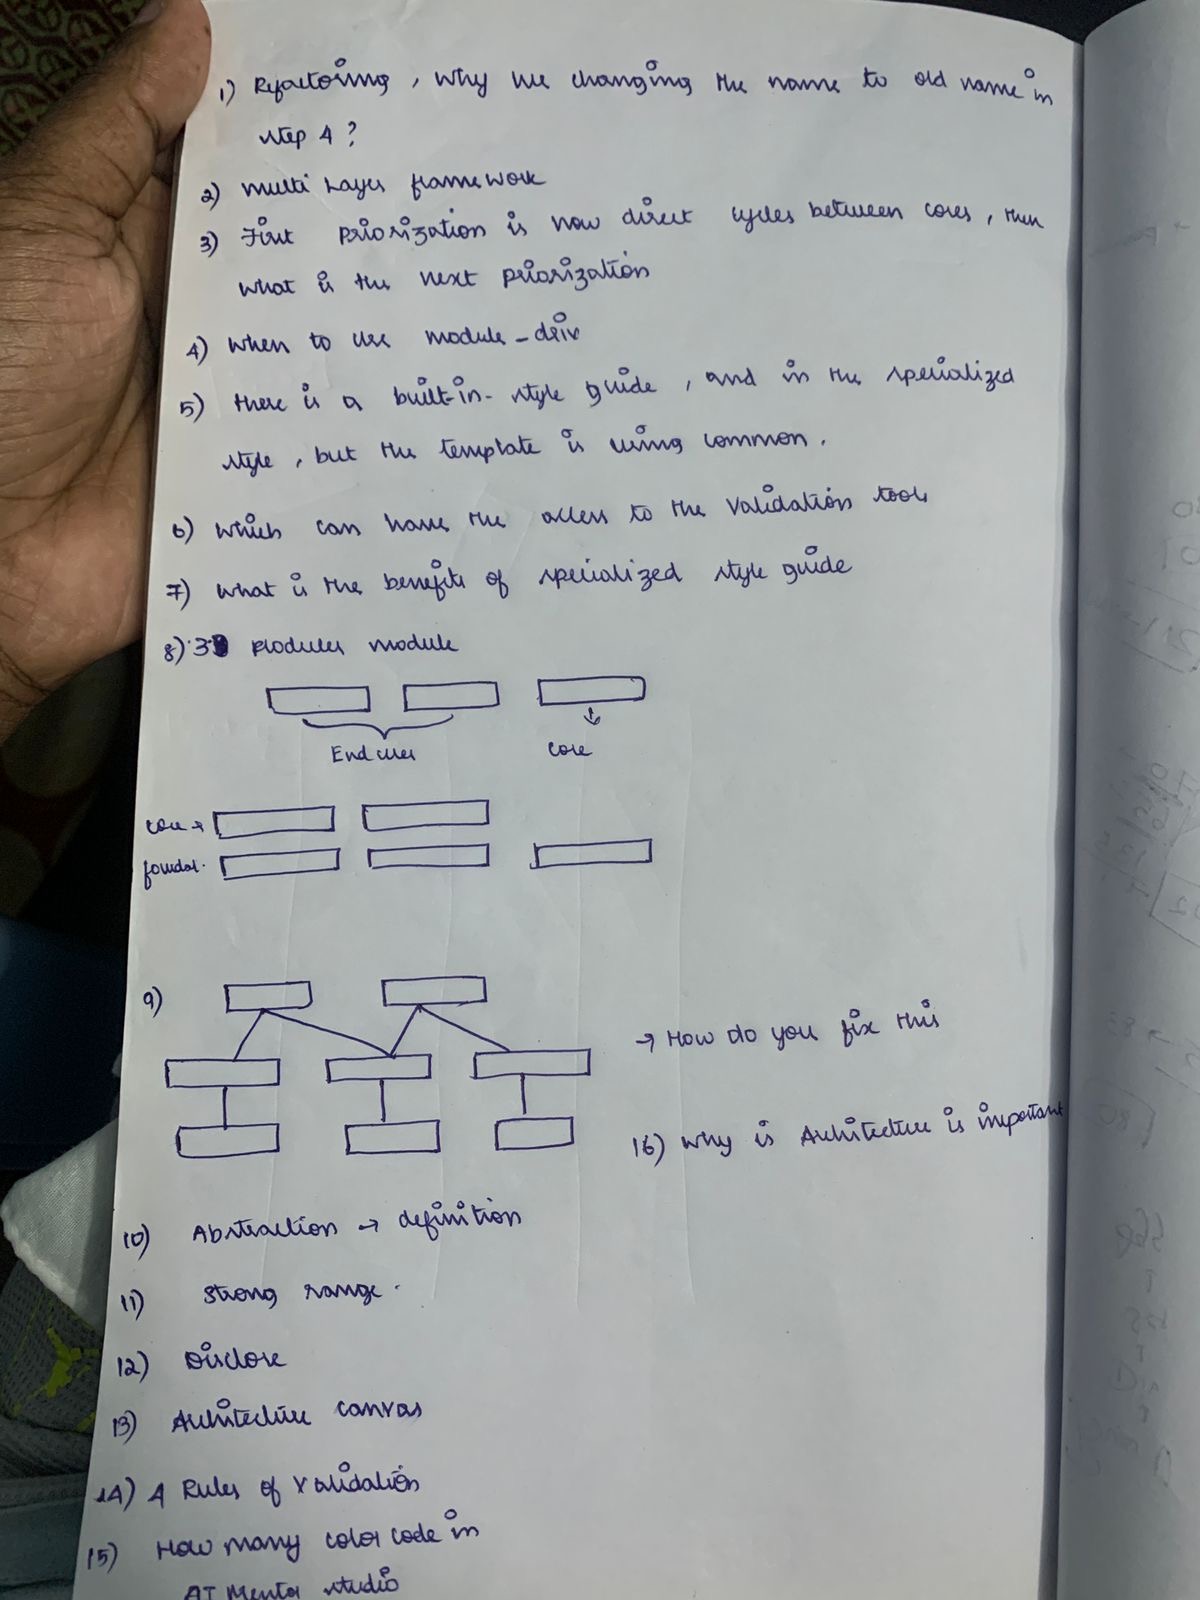 1) Refactoring, Why we changing the name to old name in
step 4?
2) Multi Layer framework
3) First priorization is now direct cycles between cores, then
what is the next priorization
4) When to use module-driv
5) there is a built-in- style guide, and in the specialized
style, but the template is using common.
6) which can have the access to the validation tools
7) What is the benefits of specialized style guide
8) 3 Producer module
End user
core
core →
foundat.
9)
→ How do you fix this
16) Why is Architecture is important
10) Abstraction → definition
11) Strong range.
12) Disclose
13) Architecture canvas
14) 4 Rules of Validation
15) How many color code in
AI Mentor studio